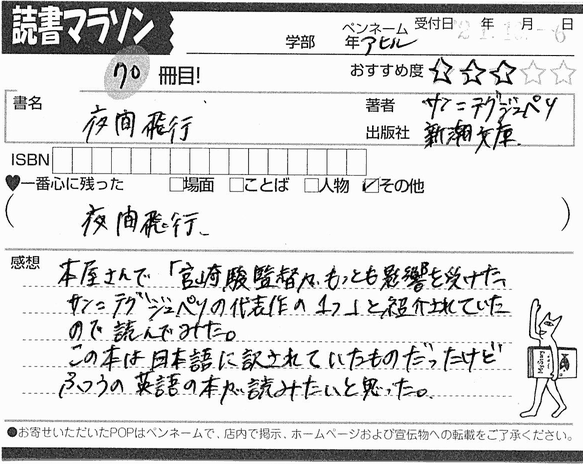 読書マラソン
学部 年 ペンネーム アヒル 受付日 年 月 日
70 冊目!
おすすめ度 ☆☆☆☆☆
書名 夜間飛行
著者 サン=テグジュペリ
出版社 新潮文庫.
ISBN
♥一番心に残った □場面 □ことば □人物 ☑その他
(夜間飛行.)
感想
本屋さんで「宮崎駿監督がもっとも影響を受けた、
サン=テグジュペリの代表作の1つ」と紹介されていた
ので読んでみた。
この本は日本語に訳されていたものだったけど
ふつうの英語の本が読みたいと思った。
●お寄せいただいたPOPはペンネームで、店内で掲示、ホームページおよび宣伝物への転載をご了承ください。